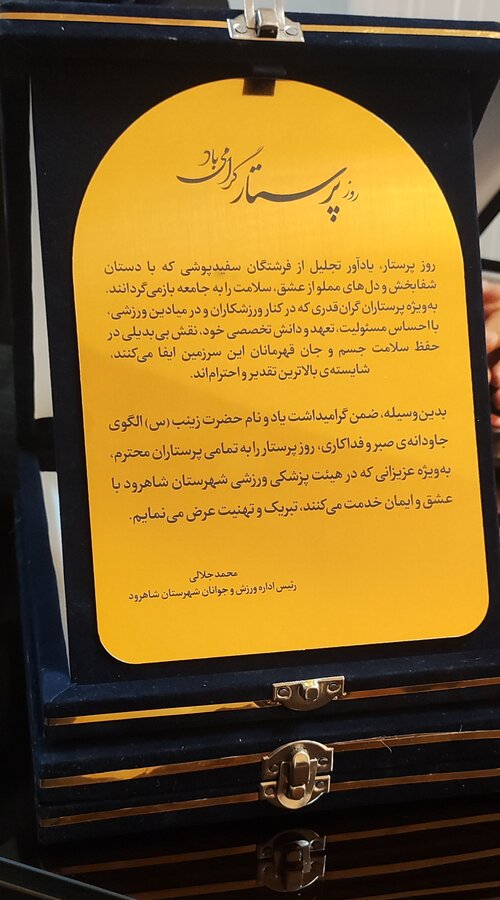 روز پرستار گرامی باد
روز پرستار، یادآور تجلیل از فرشتگان سفیدپوشی که با دستان
شفابخش و دل‌های مملو از عشق، سلامت را به جامعه بازمی‌گردانند.
به‌ویژه پرستاران گران‌قدری که در کنار ورزشکاران و در میادین ورزشی،
با احساس مسئولیت، تعهد و دانش تخصصی خود، نقش بی‌بدیلی در
حفظ سلامت جسم و جان قهرمانان این سرزمین ایفا می‌کنند،
شایسته‌ی بالاترین تقدیر و احترام‌اند.
بدین‌وسیله، ضمن گرامیداشت یاد و نام حضرت زینب (س) الگوی
جاودانه‌ی صبر و فداکاری، روز پرستار را به تمامی پرستاران محترم،
به‌ویژه عزیزانی که در هیئت پزشکی ورزشی شهرستان شاهرود با
عشق و ایمان خدمت می‌کنند، تبریک و تهنیت عرض می‌نمایم.
محمد جلالی
رئیس اداره ورزش و جوانان شهرستان شاهرود